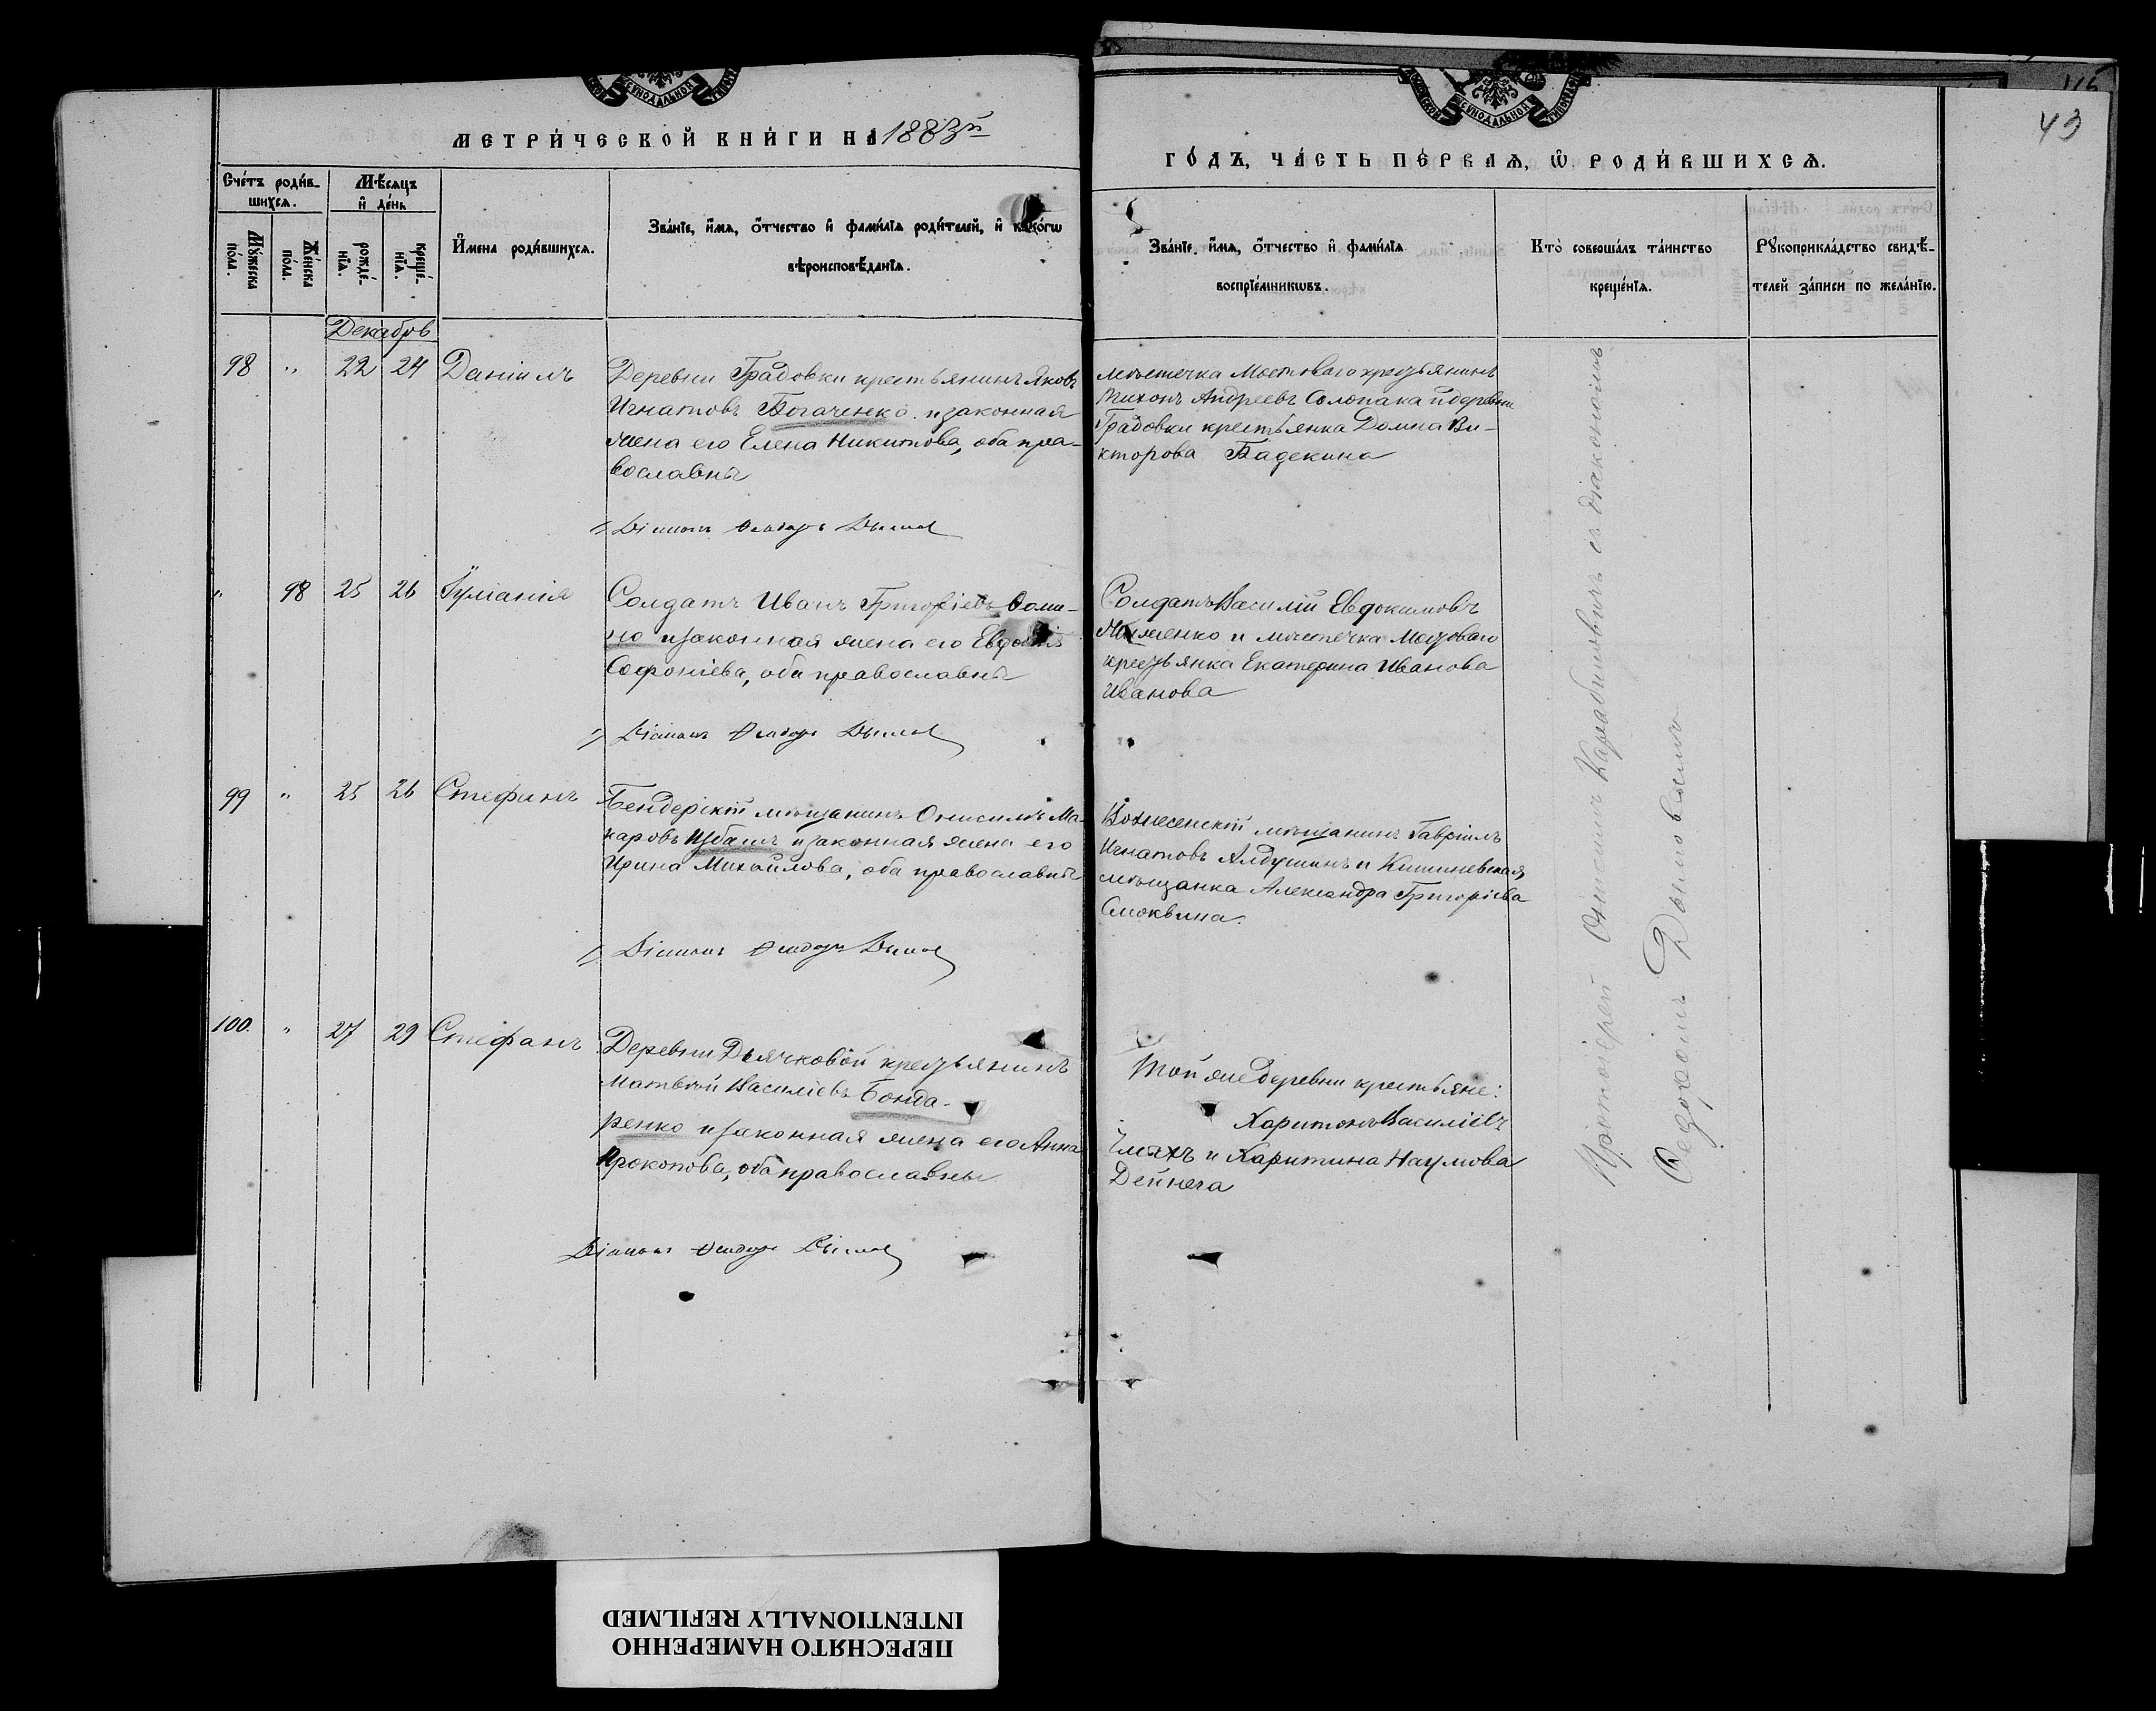 МЕТРИ́ЧЕСКОЙ КНИ́ГИ НА 1883й
ГО́ДЪ, ЧА́СТЬ ПЕ́РВАѦ, Ѡ РОДИ́ВШИХСѦ.
43
Сче́тъ роди́в-
шихсѧ.
Мѣ́сѧцъ
и҆ де́нь
Мꙋ́жеска по́ла.
Же́нска по́ла.
рожде́-
нїѧ.
креще́-
нїѧ.
И҆мена роди́вшихсѧ.
Зва́нїе, и҆́мѧ, ѻ҆́тчество и҆ фами́лїѧ роди́телей, и҆ како́гѡ
вѣроисповѣ́данїѧ.
Зва́нїе, и҆́мѧ, ѻ҆́тчество и҆ фами́лїѧ
воспрїе́мникѡвъ.
Кто̀ соверша́лъ та́инство
креще́нїѧ.
Рꙋкоприкла́дство свидѣ́-
телей за́писи по жела́нїю.
Декабрь
98 " 22 24 Даніилъ
Деревни Градовки крестьянинъ Яковъ
Игнатовъ Богаченко и законная
жена его Елена Никитова, оба пра-
вославны
Діаконъ Ѳеодоръ
мѣстечка Мостоваго крестьянинъ
Тихонъ Андреевъ Солопака и деревни
Градовки крестьянка Домна Ви-
кторова
" 98 25 26 Іуліанія
Солдатъ Иванъ Григоріевъ
и законная жена его Евдокія
Софоніева, оба православны
Діаконъ Ѳеодоръ
Солдатъ Василій Евдокимовъ
и мѣстечка Мостоваго
крестьянка Екатерина Иванова
Иванова
99 " 25 26 Стефанъ
Бендерскій мѣщанинъ Онисимъ Ма-
каровъ Избашъ и законная жена его
Ирина Михайлова, оба православны
Діаконъ Ѳеодоръ
Вознесенскій мѣщанинъ Гавріилъ
Игнатовъ Алдушинъ и Кишиневская
мѣщанка Александра Григоріева
Смоквина.
100. " 27 29 Стефанъ
Деревни Дьячковой крестьянинъ
Матвѣй Василіевъ Бонда-
ренко и законная жена его Анна
Прокопова, оба православны
Діаконъ Ѳеодоръ
Той же деревни крестьяне:
Харитонъ Василіевъ
и Харитина Наумова
Дейнега
Протоіерей Онисимъ Карабиновичъ съ діакономъ
Ѳеодоромъ
ПЕРЕСНЯТО НАМЕРЕННО
INTENTIONALLY REFILMED